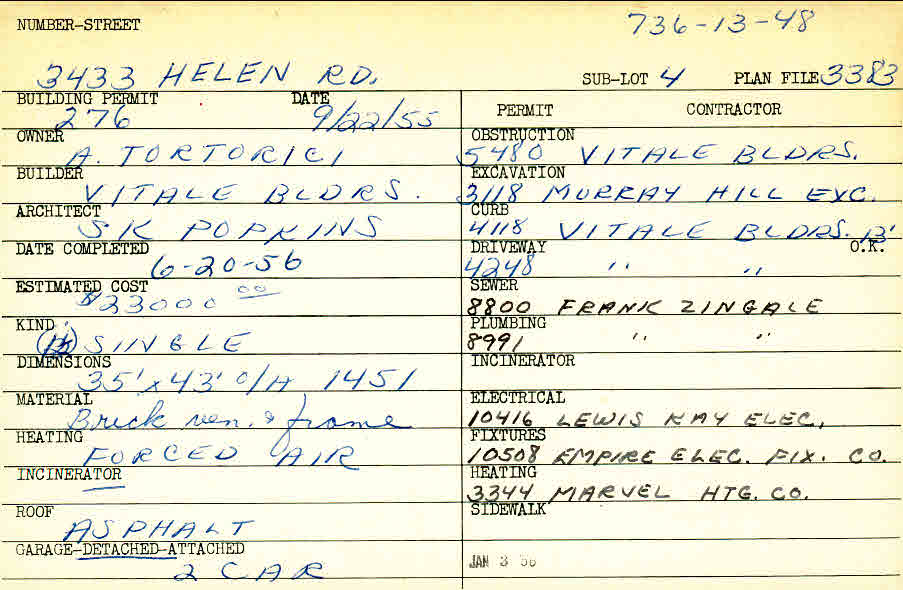 NUMBER-STREET 736-13-48
3433 HELEN RD. SUB-LOT 4 PLAN FILE 3383
BUILDING PERMIT DATE
276 9/22/55
OWNER
A. TORTORICI
BUILDER
VITALE BLDRS.
ARCHITECT
SK POPKINS
DATE COMPLETED
6-20-56
ESTIMATED COST
$23000 00
KIND
SINGLE
DIMENSIONS
35' x 43' O/A 1451
MATERIAL
Brick ven. & frame
HEATING
FORCED AIR
INCINERATOR
ROOF
ASPHALT
GARAGE-DETACHED-ATTACHED
2 CAR
PERMIT CONTRACTOR
OBSTRUCTION
5480 VITALE BLDRS.
EXCAVATION
3118 MURRAY HILL EXC.
CURB
4118 VITALE BLDRS. 13'
DRIVEWAY O.K.
4248 " "
SEWER
8800 FRANK ZINGALE
PLUMBING
8991 " "
INCINERATOR
ELECTRICAL
10416 LEWIS KAY ELEC.
FIXTURES
10508 EMPIRE ELEC. FIX. CO.
HEATING
3344 MARVEL HTG. CO.
SIDEWALK
JAN 3 56